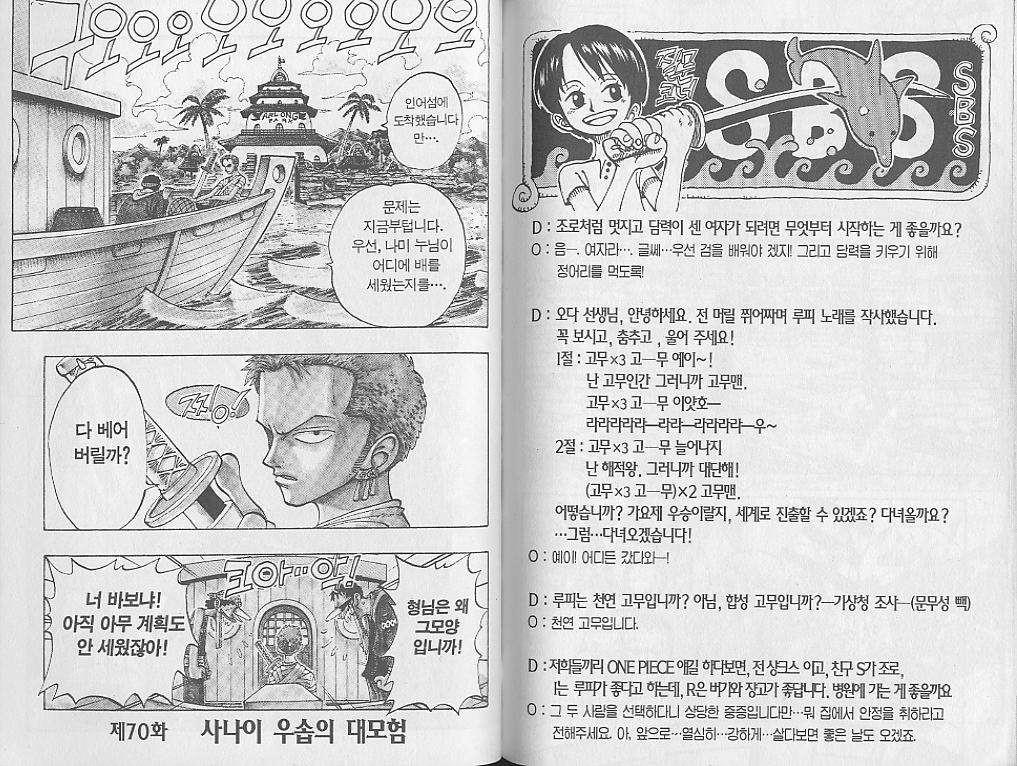 쿠오오오오오오오오오
인어섬에
도착했습니다
만….
ARLONG
문제는
지금부텁니다.
우선, 나미 누님이
어디에 배를
세웠는지를….
다 베어
버릴까?
너 바보냐!
아직 아무 계획도
안 세웠잖아!
크아--악!
형님은 왜
그모양
입니까!
제70화 사나이 우솝의 대모험
질문코너
SBS
SBS
D : 조로처럼 멋지고 담력이 센 여자가 되려면 무엇부터 시작하는 게 좋을까요?
O : 음―. 여자라…. 글쎄…우선 검을 배워야 겠지! 그리고 담력을 키우기 위해
정어리를 먹도록!
D : 오다 선생님, 안녕하세요. 전 머릴 쥐어짜며 루피 노래를 작사했습니다.
꼭 보시고, 춤추고 , 울어 주세요!
1절 : 고무×3 고―무 예이~!
난 고무인간 그러니까 고무맨.
고무×3 고―무 이얏호―
라라라라라―라라―라라라라―우~
2절 : 고무×3 고―무 늘어나지
난 해적왕. 그러니까 대단해!
(고무×3 고―무)×2 고무맨.
어떻습니까? 가요제 우승이랄지, 세계로 진출할 수 있겠죠? 다녀올까요?
…그럼…다녀오겠습니다!
O : 예이! 어디든 갔다와―!
D : 루피는 천연 고무입니까? 아님, 합성 고무입니까?―기상청 조사―(문무성 빽)
O : 천연 고무입니다.
D : 저희들끼리 ONE PIECE 얘길 하다보면, 전 샹크스 이고, 친구 S가 조로,
I는 루피가 좋다고 하는데, R은 버기와 쟝고가 좋답니다. 병원에 가는 게 좋을까요
O : 그 두 사람을 선택하다니 상당한 중증입니다만…뭐 집에서 안정을 취하라고
전해주세요. 아, 앞으로…열심히…강하게…살다보면 좋은 날도 오겠죠.